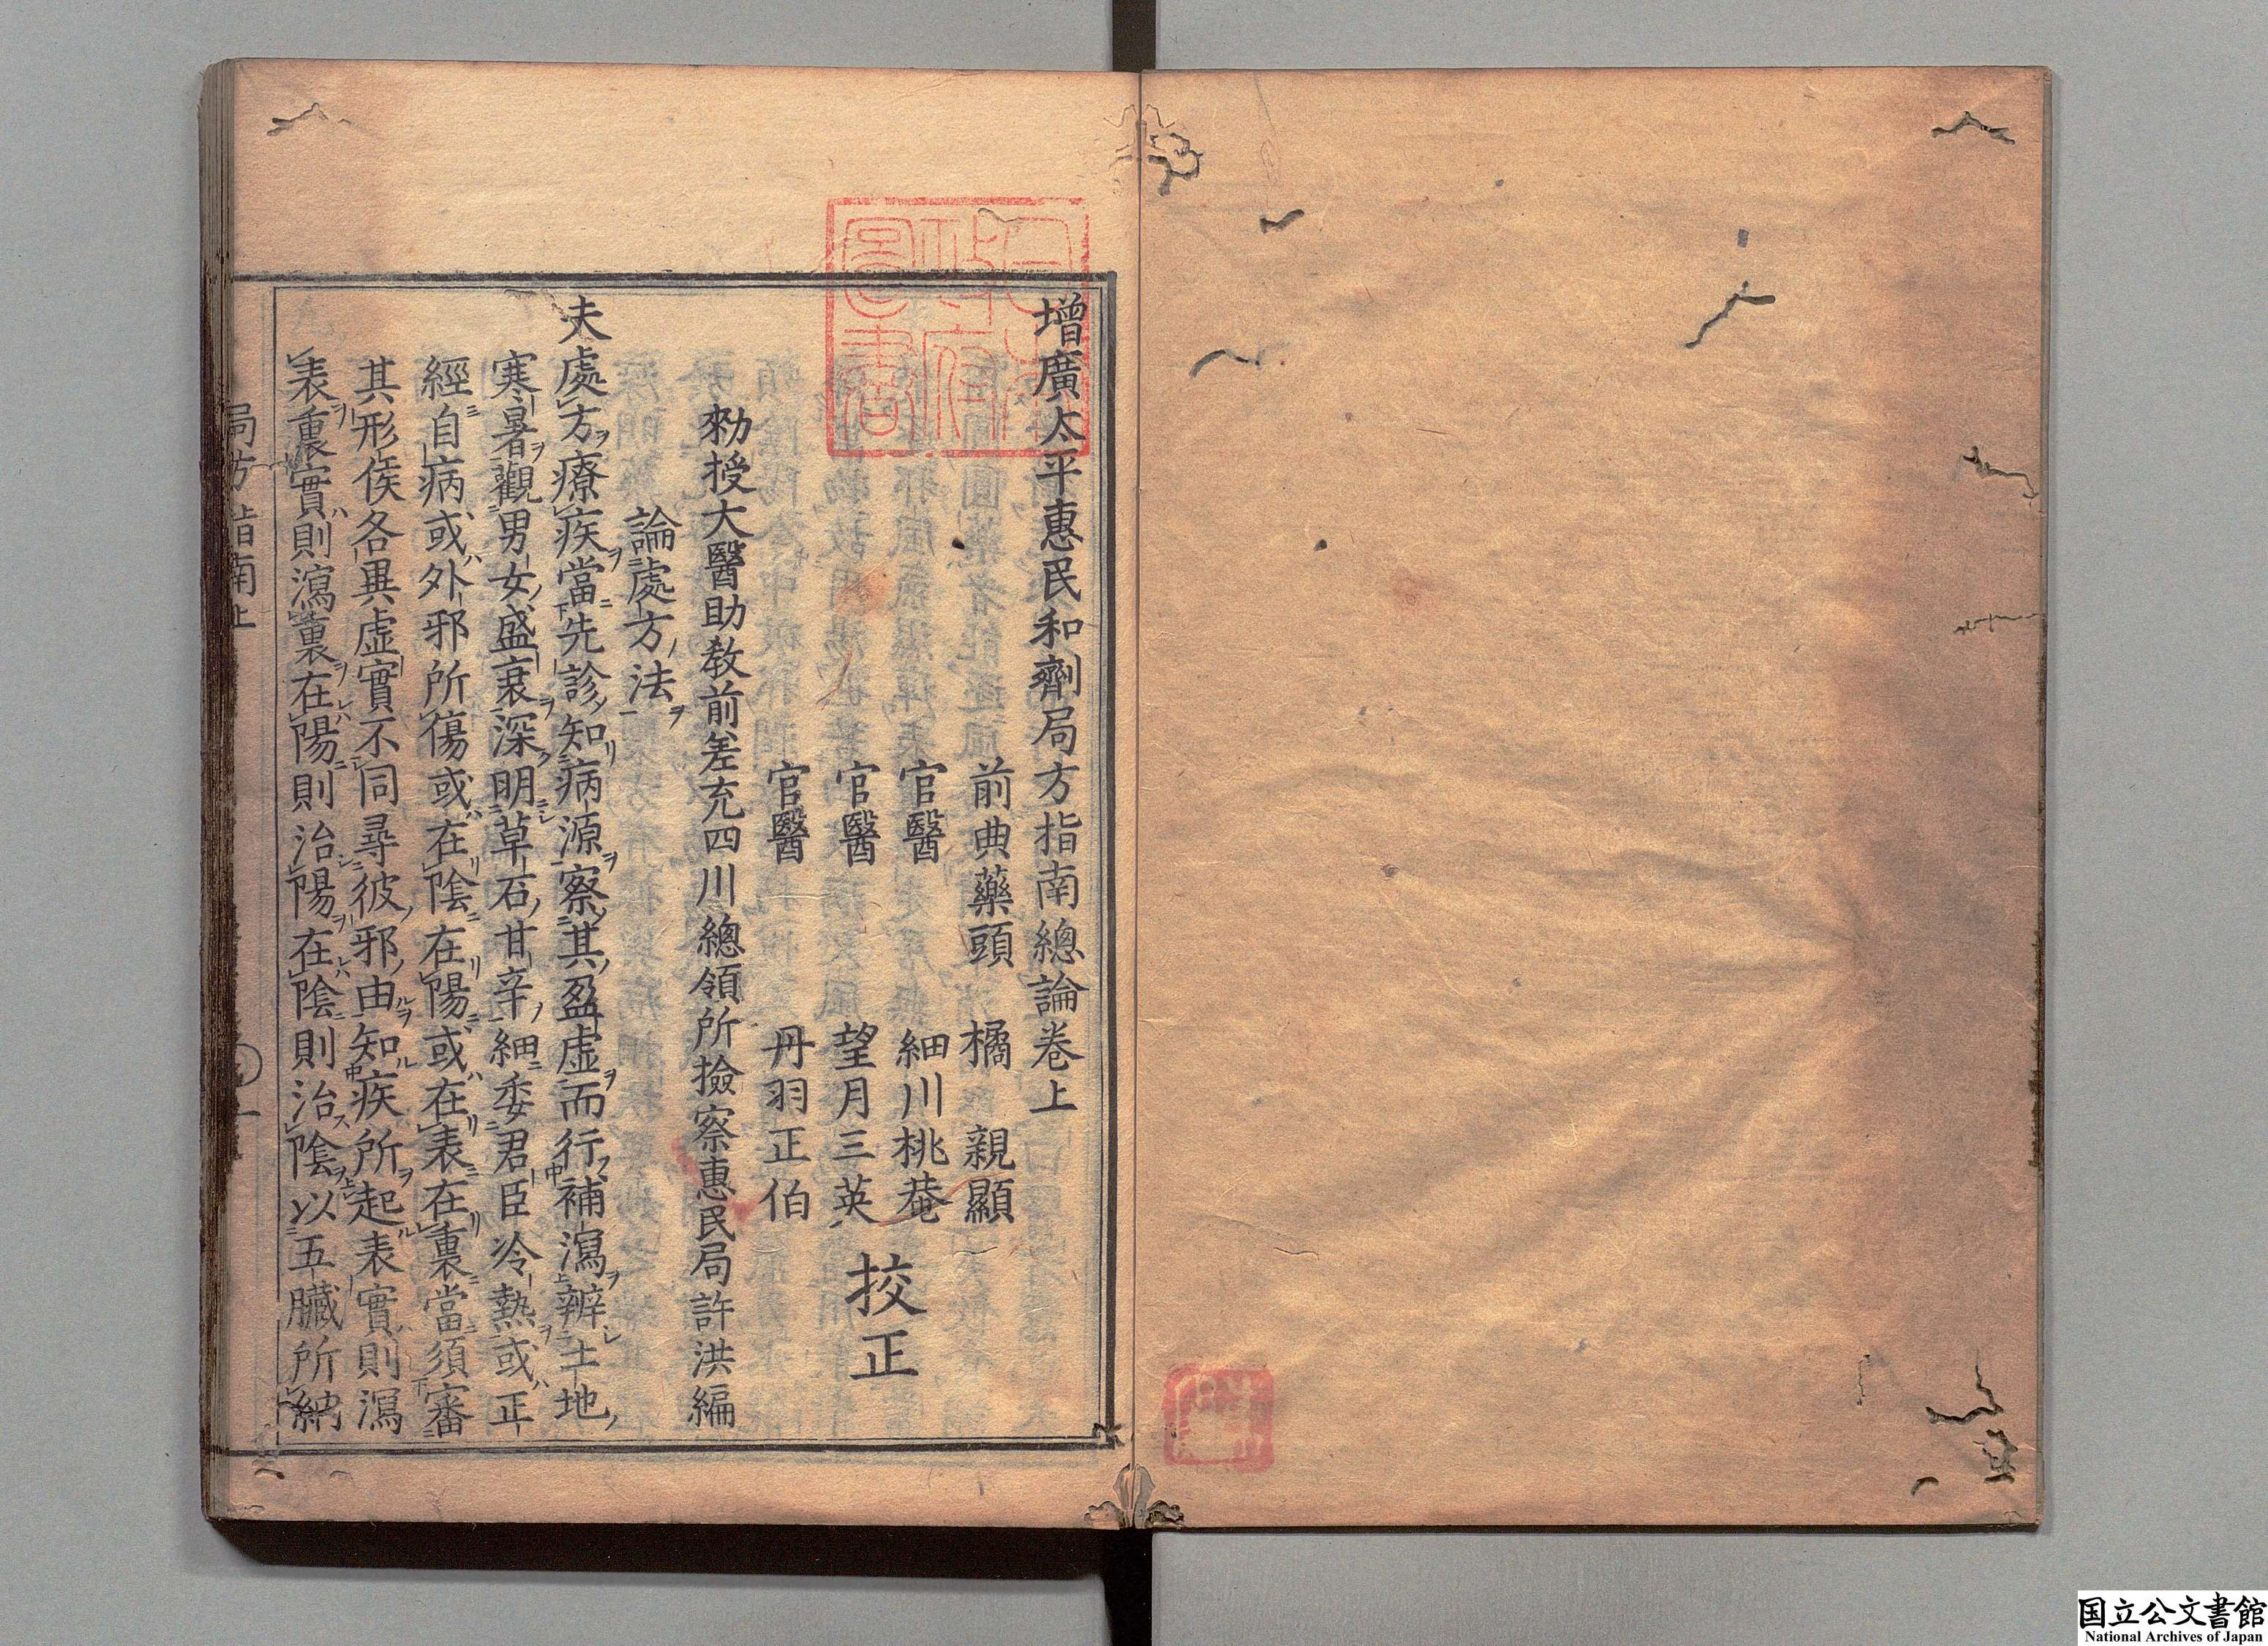 增廣太平惠民和劑局方指南總論卷上
前典藥頭 橘 親顯
官醫 細川桃菴
官醫 望月三英
官醫 丹羽正伯
挍正
勑授大醫助教前差充四川總領所撿察惠民局許洪編
論處方法
夫處方療疾當先診知病源察其盈虛而行補瀉辨土地
寒暑觀男女盛衰深明草石甘辛細委君臣冷熱或正
經自病或外邪所傷或在陰在陽或在表在裏當須審
其形候各異虛實不同尋彼邪由知疾所起表實則瀉
表裏實則瀉裏在陽則治陽在陰則治陰以五臟所納
局方指南上
日本政府圖書
国立公文書館
National Archives of Japan